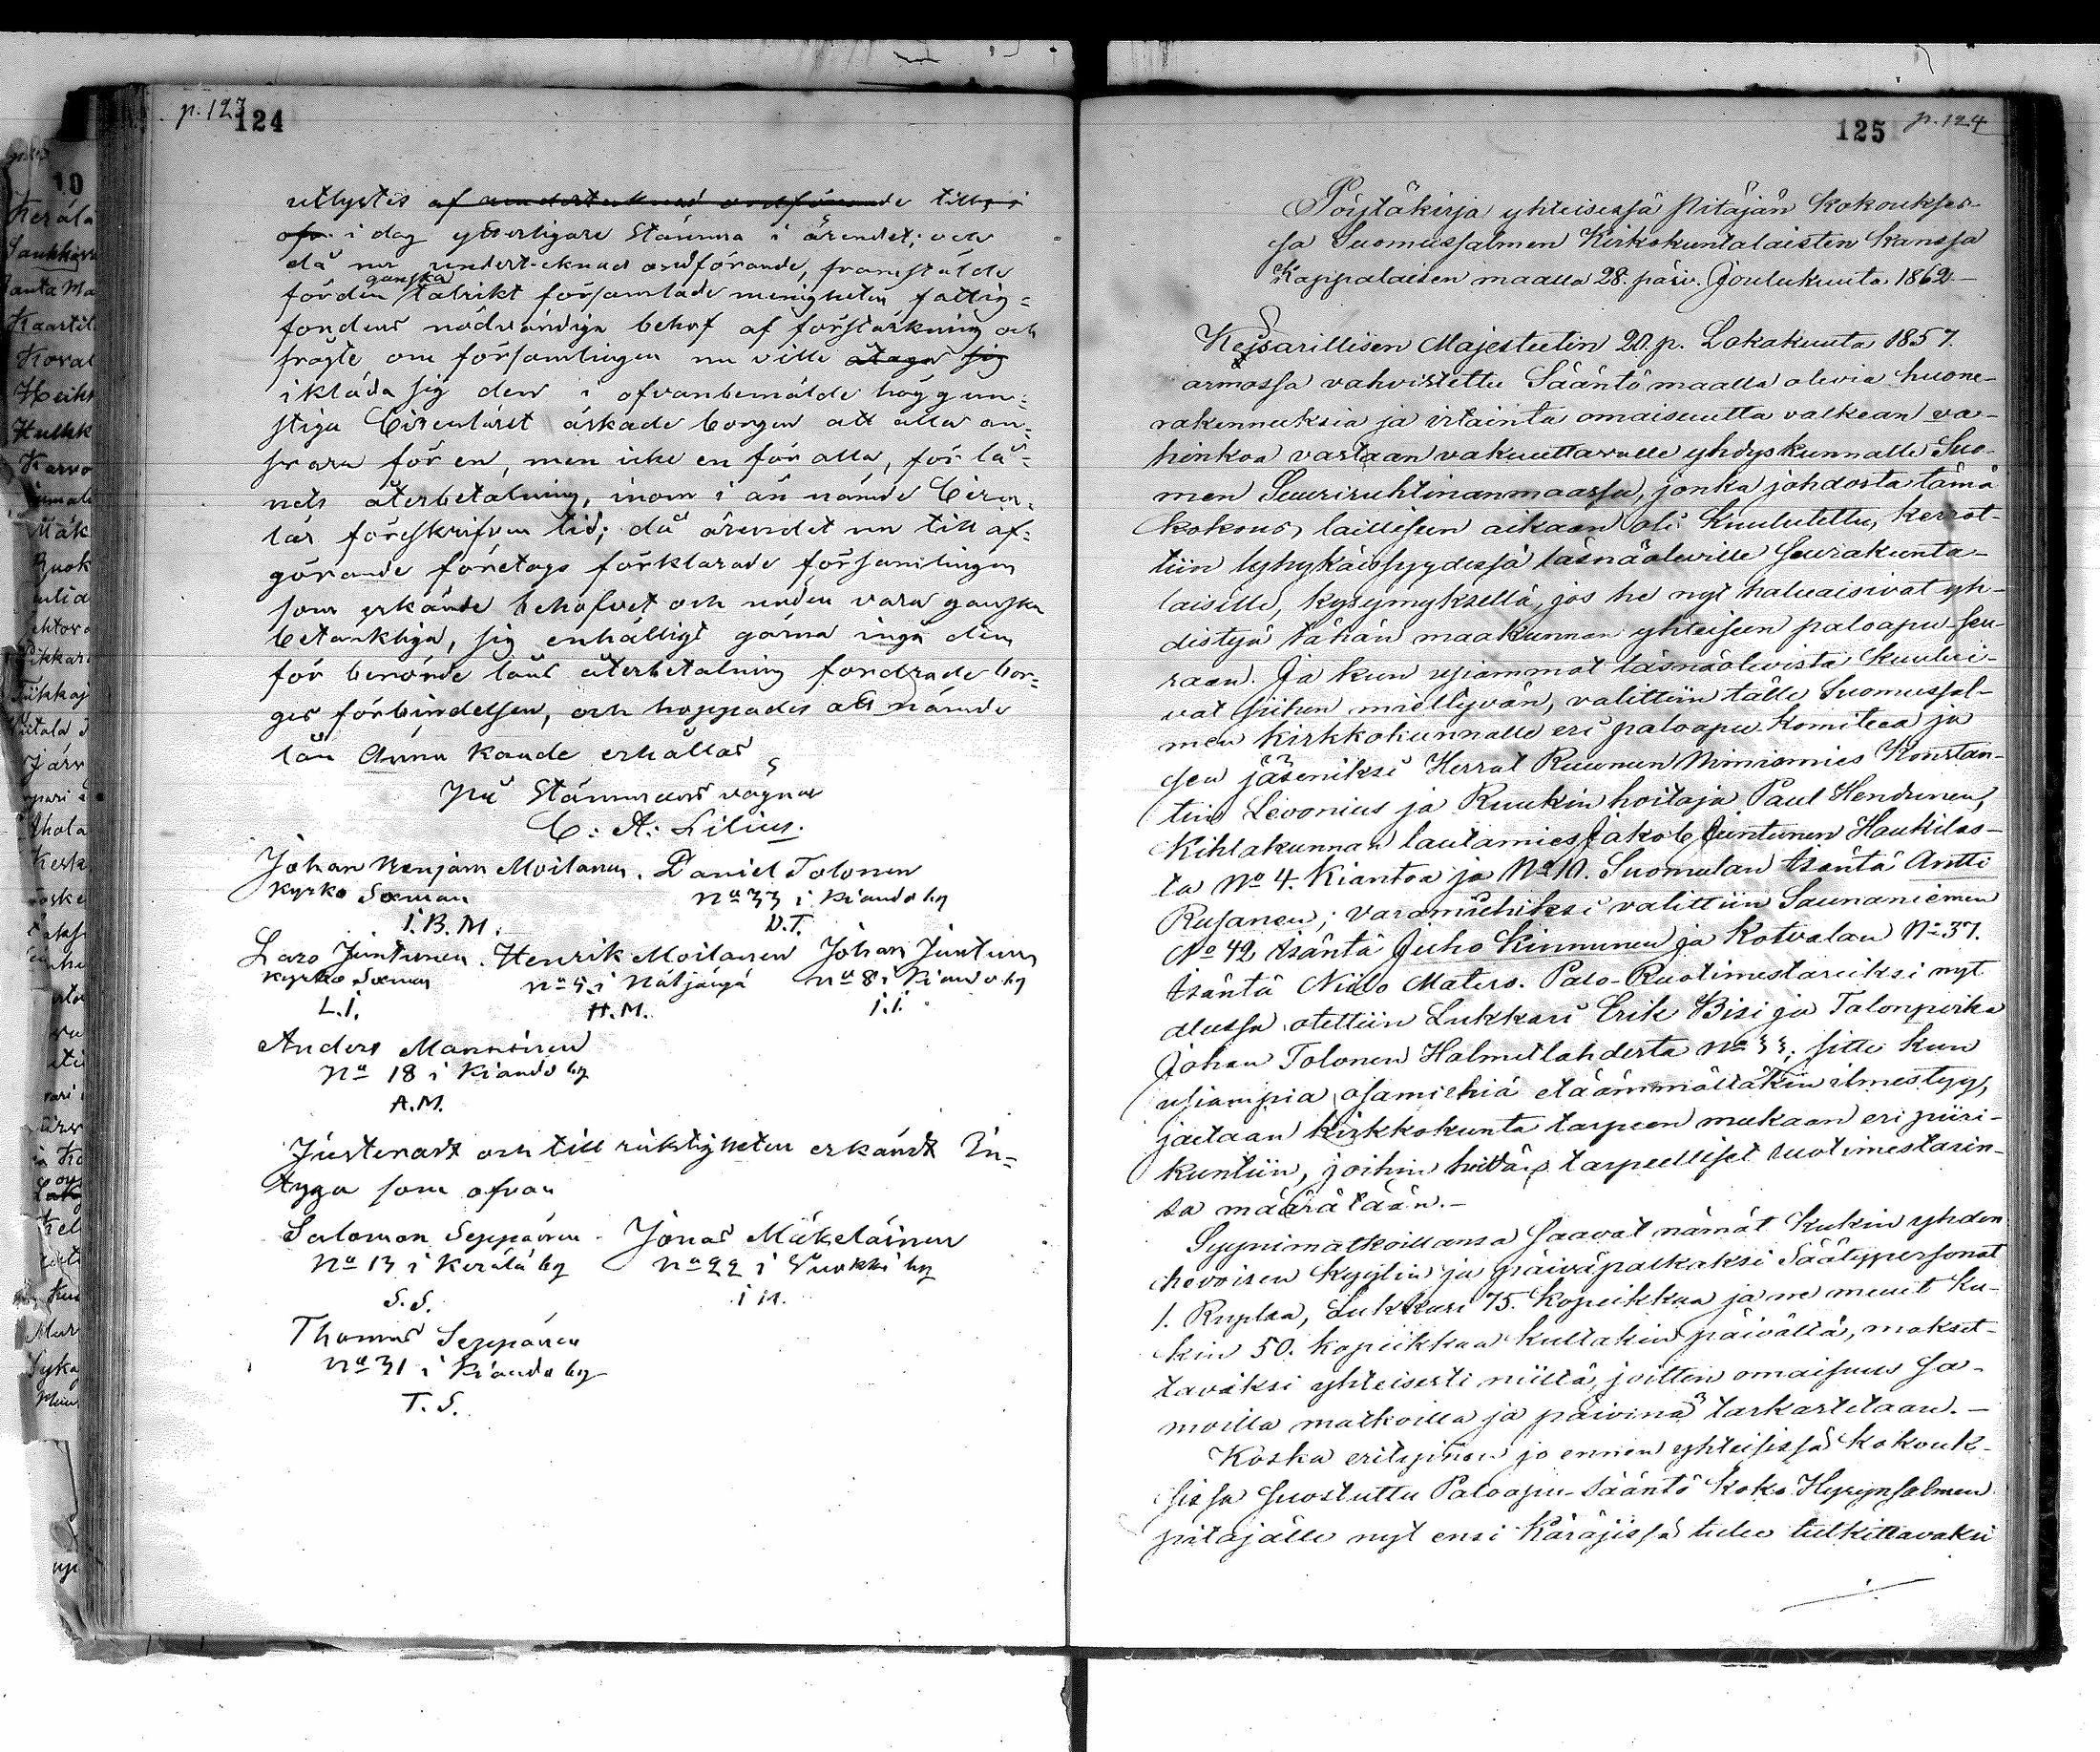 p. 123
124
utlystes af undertecknad ordförande till
ofv. i dag ytterligare Stämma i ärendet; och
då nu undertecknad ordförande, framstälde
för den ganska talrikt församlade menigheten fattig=
fondens nödvändiga behof af förstärkning och
frågte om församlingen nu ville åtaga sig
ikläda sig den i ofvanbemälde höggun=
stiga Circuläret äskade borgen att alla an=
svara för en, men icke en för alla, för lå=
nets återbetalning, inom i än nämde Circu=
lär föreskrifven tid; då ärendet nu till af=
görande företogs förklarade församlingen
som erkände behofvet och nöden vara ganska
betänkliga, sig enhälligt gärna ingå den
för berörde lån återbetalning fordrade bor=
gesförbindelsen, och hoppades att nämde
lån ännu kunde erhållas
På Stämmans vägnar
C. A. Lilius.
Johan Benjam Moilanen. Daniel Tolonen
Kyrko Sexman No 33 i Kiando by
I.B.M. D.T.
Lars Juntunen. Henrik Moilanen Johan Juntunen
Kyrko Sexman No 5 i Näljängä No 8 i Kiando by
L.I. H.M. I.I.
Anders Manninen
No 18 i Kiando by
A.M.
Justeradt och till riktigheten erkändt In=
tyga som ofvan
Salomon Seppänen Jonas Mäkeläinen
No 13 i Kerälä by No 22 i Vuokki by
S.S. I M.
Thomas Seppänen
No 31 i Kiando by
T. S.
125
p. 124
Pöytäkirja yhteisessä Pitäjän Kokoukses-
sa Suomussalmen Kirkokuntalaisten kanssa
Kappalaisen maalla 28. päiv. Joulukuuta 1862.—
Keisarillisen Majesteetin 20. p. Lokakuuta 1857.
armossa vahvistettu Sääntö maalla olevia huone-
rakennuksia ja irtainta omaisuutta valkean va-
hinkoa vastaan vakuuttavalle yhdyskunnalle Suo-
men Suuriruhtinanmaassa, jonka johdosta tämä
kokous, laillisen aikaan oli kuulutettu, kerrot-
tiin lyhykäissyydessä läsnäoleville seurakunta-
laisille, kysymyksellä, jos he nyt haluaisivat yh-
distyä tähän maakunnan yhteiseen paloapu-seu-
raan. Ja kun usiammat läsnäolevista kuului-
vat siihen miellyvän, valittiin tälle Suomussal-
men kirkkokunnalle eri paloapu-komitea ja
sen jäseniksi Herrat Ruunun Nimismies Konstan-
tin Levonius ja Ruukin hoitaja Paul Hendunen,
Kihlakunnan lautamies Jakob Juntunen Haukilas-
ta No 4. Kiantoa ja No 10. Suomulan Isäntä Antti
Rusanen; varamiehiksi valittiin Saunaniemen
No 42 Isäntä Juho Kinnunen ja Kotvalan No 37.
Isäntä Niilo Matero. Palo-Ruotimestareiksi nyt
alussa otettiin Lukkari Erik Bisi ja Talonpoika
Johan Tolonen Halmetlahdesta No 33; sitte kun
usiampia osamiehiä etäämmältäkin ilmestyy,
jaetaan kirkkokunta tarpeen mukaan eri piiri-
kuntiin, joihin tarpeelliset ruotimestarin-
sa määrätään.—
Syynimatkoillansa saavat nämät kukin yhden
hevoisen kyytin ja päiväpalkaksi Säätypersonat
1. Ruplaa, Lukkari 75. kopeikkaa ja ne muut ku-
kin 50. kopeikkaa kultakin päivältä, makset-
tavaksi yhteisesti niiltä, joitten omaisuus sa-
moilla matkoilla ja päivinä tarkastetaan.—
Koska erityinen jo ennen yhteisissä kokouk-
sissa suostuttu Paloapu-Sääntö koko Hyrynsalmen
pitäjälle nyt ensi Käräjissä tulee tutkittavaksi